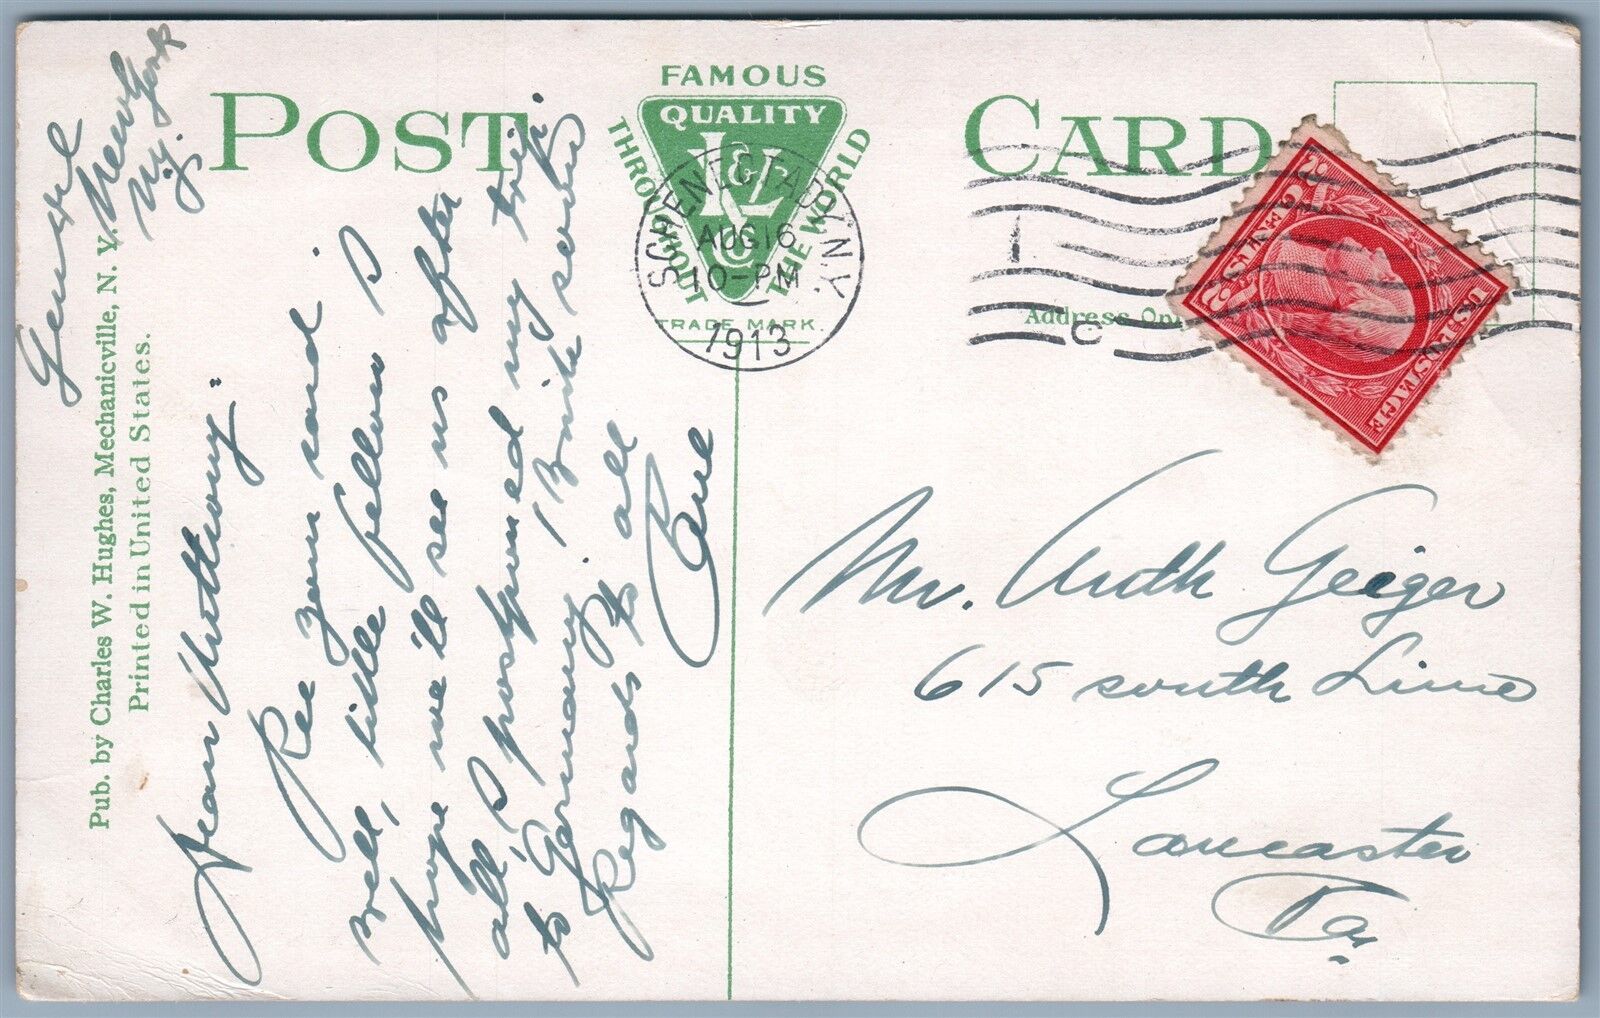 POST CARD
FAMOUS
QUALITY
THROUGHOUT THE WORLD
L & L
Co
TRADE MARK.
SCHENECTADY, N.Y.
AUG 16
10-PM
1913
1
C
Address Only
U.S. POSTAGE
2 CENTS 2
Pub. by Charles W. Hughes, Mechanicville, N. Y.
Printed in United States.
New York
N.Y.
Dear Anthony:
See your card
well, little fellow I
hope we'll see us after
all, I postponed my trip
to Germany, Write soon
Regards to all
Carl
Mr. Anth Geiger
615 South Lime
Lancaster
Pa.